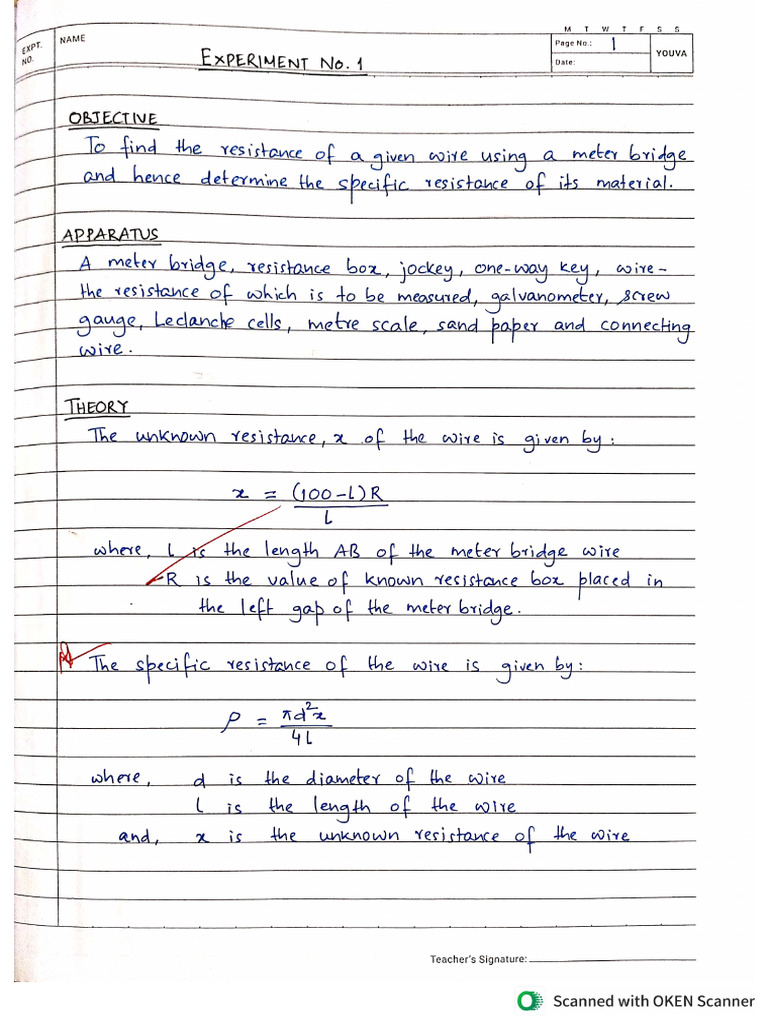 M T W T F S S
EXPT. NO.
NAME
Page No.: 1
YOUVA
Date:
EXPERIMENT NO. 1
OBJECTIVE
To find the resistance of a given wire using a meter bridge
and hence determine the specific resistance of its material.
APPARATUS
A meter bridge, resistance box, jockey, one-way key, wire-
the resistance of which is to be measured, galvanometer, screw
gauge, Leclanche cells, metre scale, sand paper and connecting
wire.
THEORY
The unknown resistance, x of the wire is given by:
x = (100-l)R
l
where, l is the length AB of the meter bridge wire
R is the value of known resistance box placed in
the left gap of the meter bridge.
The specific resistance of the wire is given by:
ρ = πd²x
4L
where, d is the diameter of the wire
l is the length of the wire
and, x is the unknown resistance of the wire
Teacher's Signature:
Scanned with OKEN Scanner